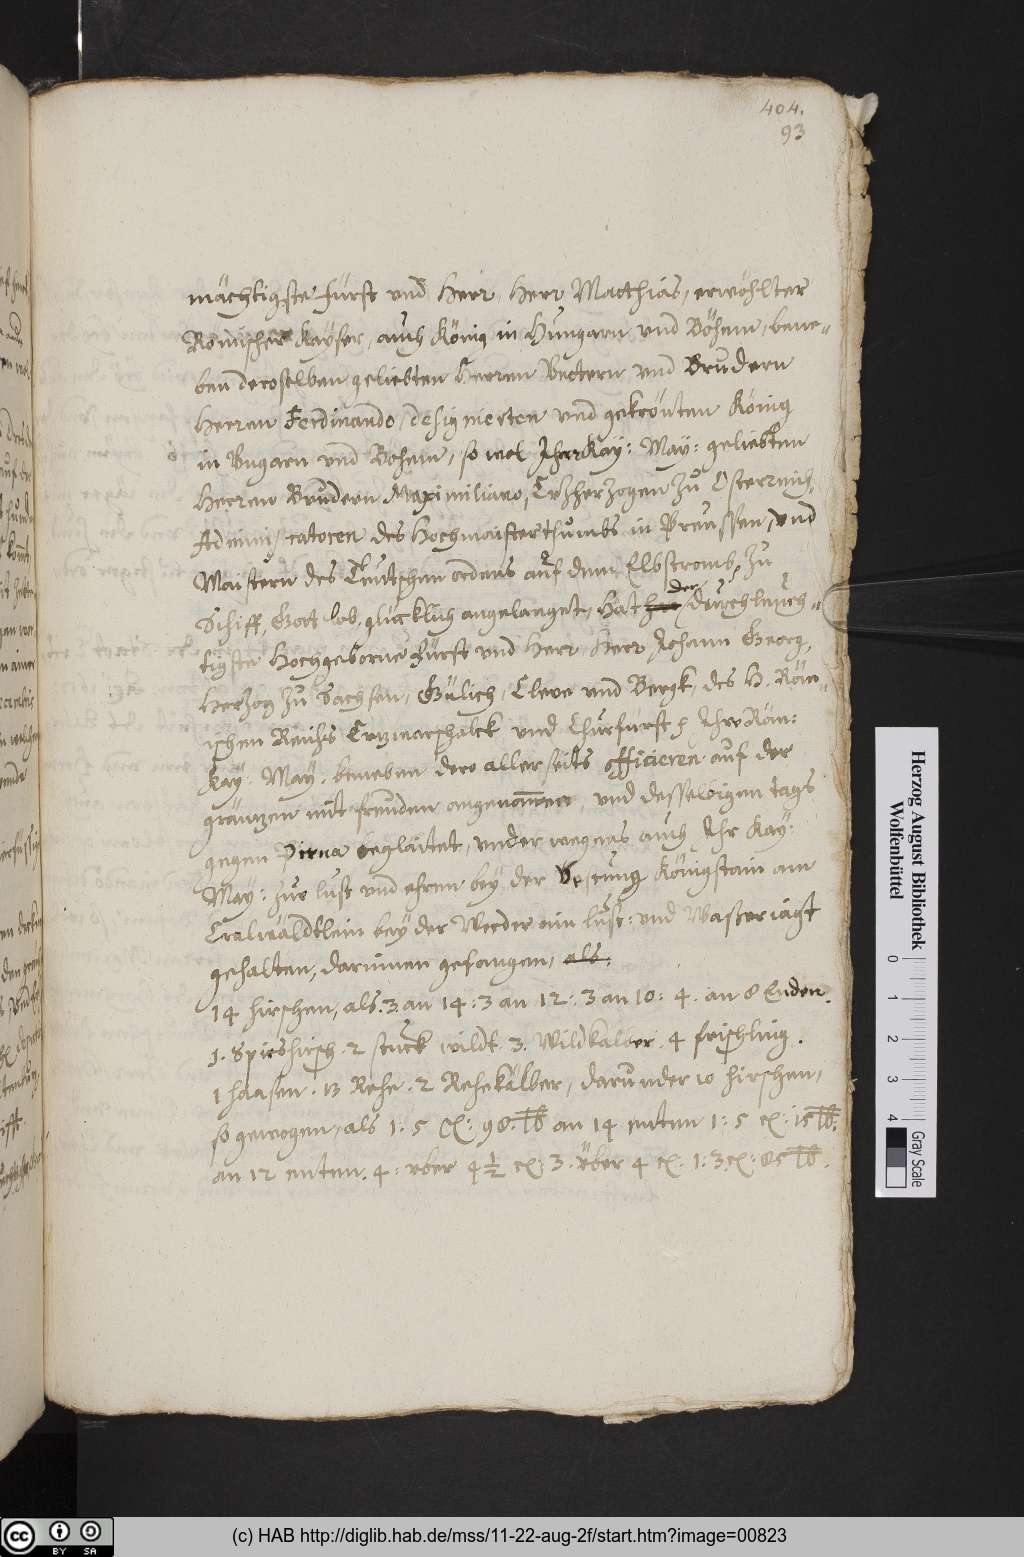 404.
93
mächtigste Fürst vnd Herr, Herr Matthias, erwöhlter
Römischer Kaÿser, auch König in Hungarn vnd Böhem, bene-
ben deroselben geliebten Herren Vettern vnd Brudern
Herren Ferdinando, designierten vnd gekrönten König
in Vngarn vnd Böhem, so wol Ihrer Kaÿ: Maÿ: geliebten
Herren Brudern Maximiliano, Ertzherzogen zu Österreich,
Administratoren des Hochmaisterthumbs in Preussen, vnd
Maistern des Teutschen ordens auf dem Elbstromb, zu
Schiff, Gott lob, glücklich angelanget, Hat der, durchleuch-
tigste Hochgeborne Fürst vnd Herr Herr Johann Georg,
Herzog zu Sachsen, Gülich, Cleve vnd Bergk, des H. Röm-
ischen Reichs Ertzmarschalck vnd Churfürst, Ihr Röm:
Kaÿ. Maÿ. beneben dero allerseits officieren auf der
gräntzen mit freuden angenommen, vnd desselbigen tags
gegen Pirna beglaitet, vnder wegens auch Ihr Kaÿ:
Maÿ: zur lust vnd ehren beÿ der Vestung Königstain am
wäldtlein beÿ der ein lust: vnd Wasser iagt
gehalten, darinnen gefangen, als.
14 Hirschen, als. 3. an 14: 3 an 12: 3 an 10: 4. an 8 Enden.
1. Spieshirsch. 2 stuck wildt. 3. Wildkälber. 4 frischling.
1 Haasen. 13 Rehe. 2 Rehekälber, darunder 10 Hirschen,
so gewogen, als 1: 5 Ct: 98. lb an 14 enten 1: 5 ct: 15 lb:
an 12 enten. 4: vber 4 1/2 ct: 3. vber 4 ct: 1: 3. ct: 85 lb.
Herzog August Bibliothek
Wolfenbüttel
0 1 2 3 4
Gray Scale
(c) HAB http://diglib.hab.de/mss/11-22-aug-2f/start.htm?image=00823
cc BY SA